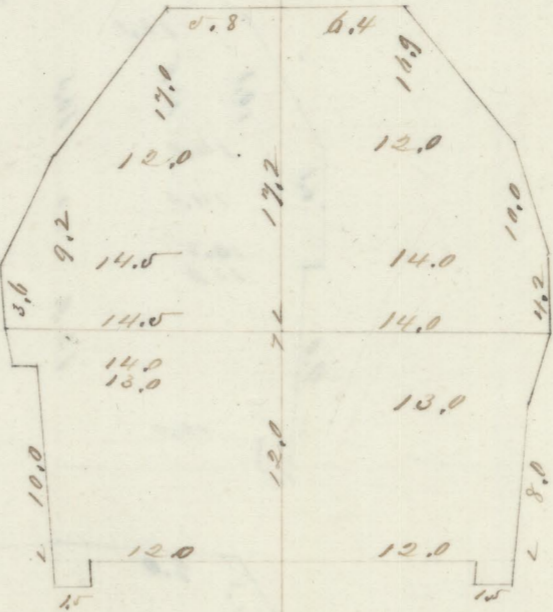 5.8 6.4
17.0 16.9
12.0 12.0
17.2
9.2 10.0
14.5 14.0
3.6 4.2
14.5 14.0
14.0
13.0
13.0
12.0
10.0 8.0
12.0 12.0
1.5 1.5